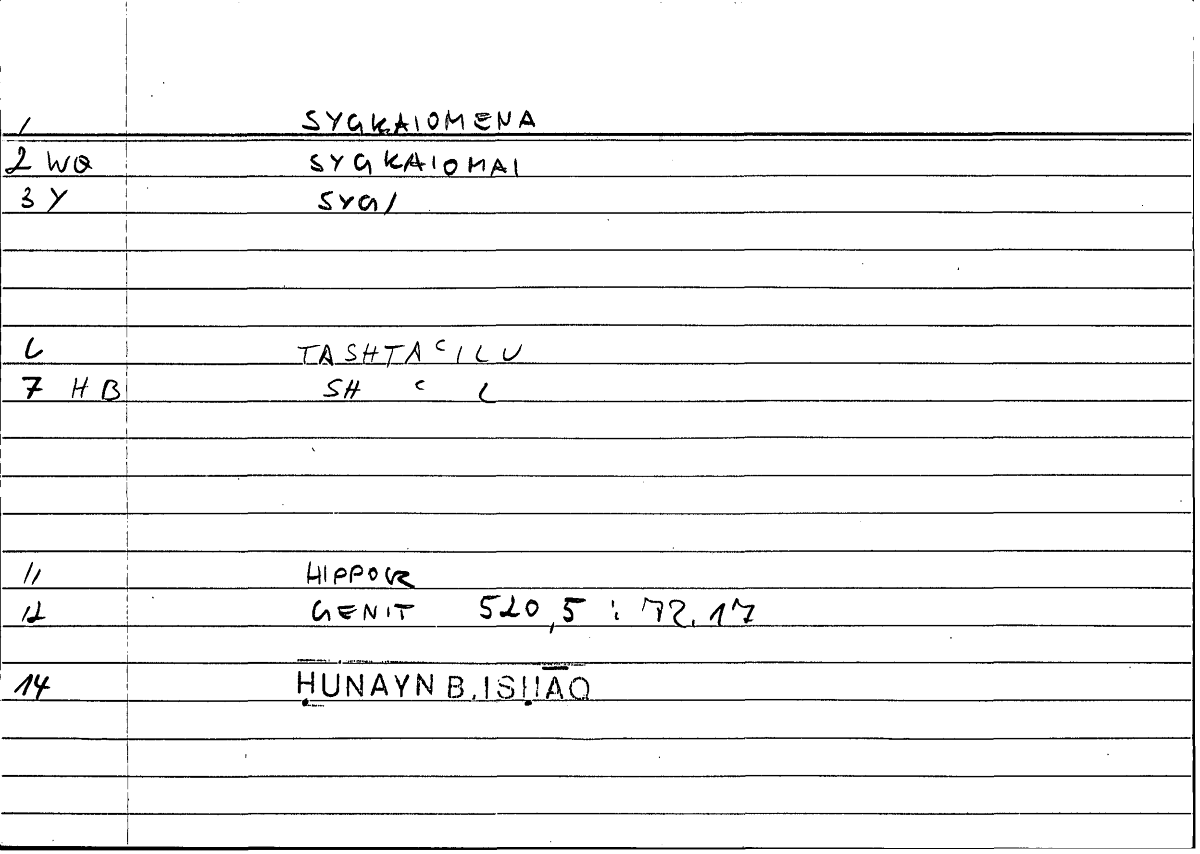 1 SYGKAIOMENA
2 WQ SYGKAIOMAI
3 Y SYG/
6 TASHTAʿILU
7 HB SH ʿ L
11 HIPPOCR
12 GENIT 520,5 : 72.17
14 ḤUNAYN B. ISḤĀQ